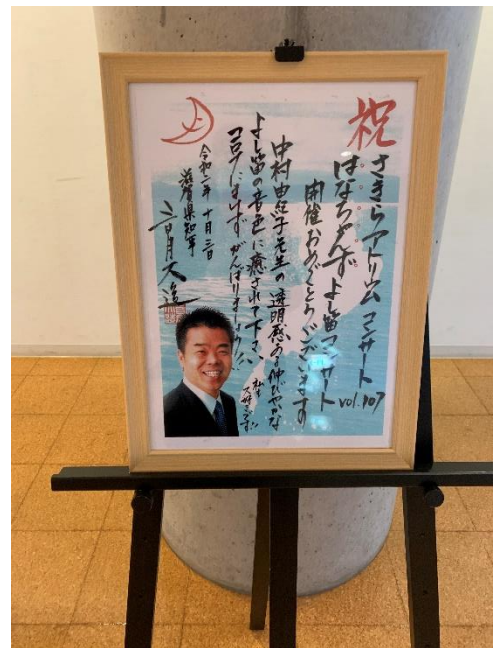 祝
さきらアトリウムコンサート vol.107
はなちゃんず よし笛コンサート
開催おめでとうございます
中村由紀子先生の透明感ある伸びやかな
よし笛の音色に癒されて下さい
コロナにまけず がんばりましょう!!
私も大好きです!!
令和二年 十月三日
滋賀県知事
三日月大造